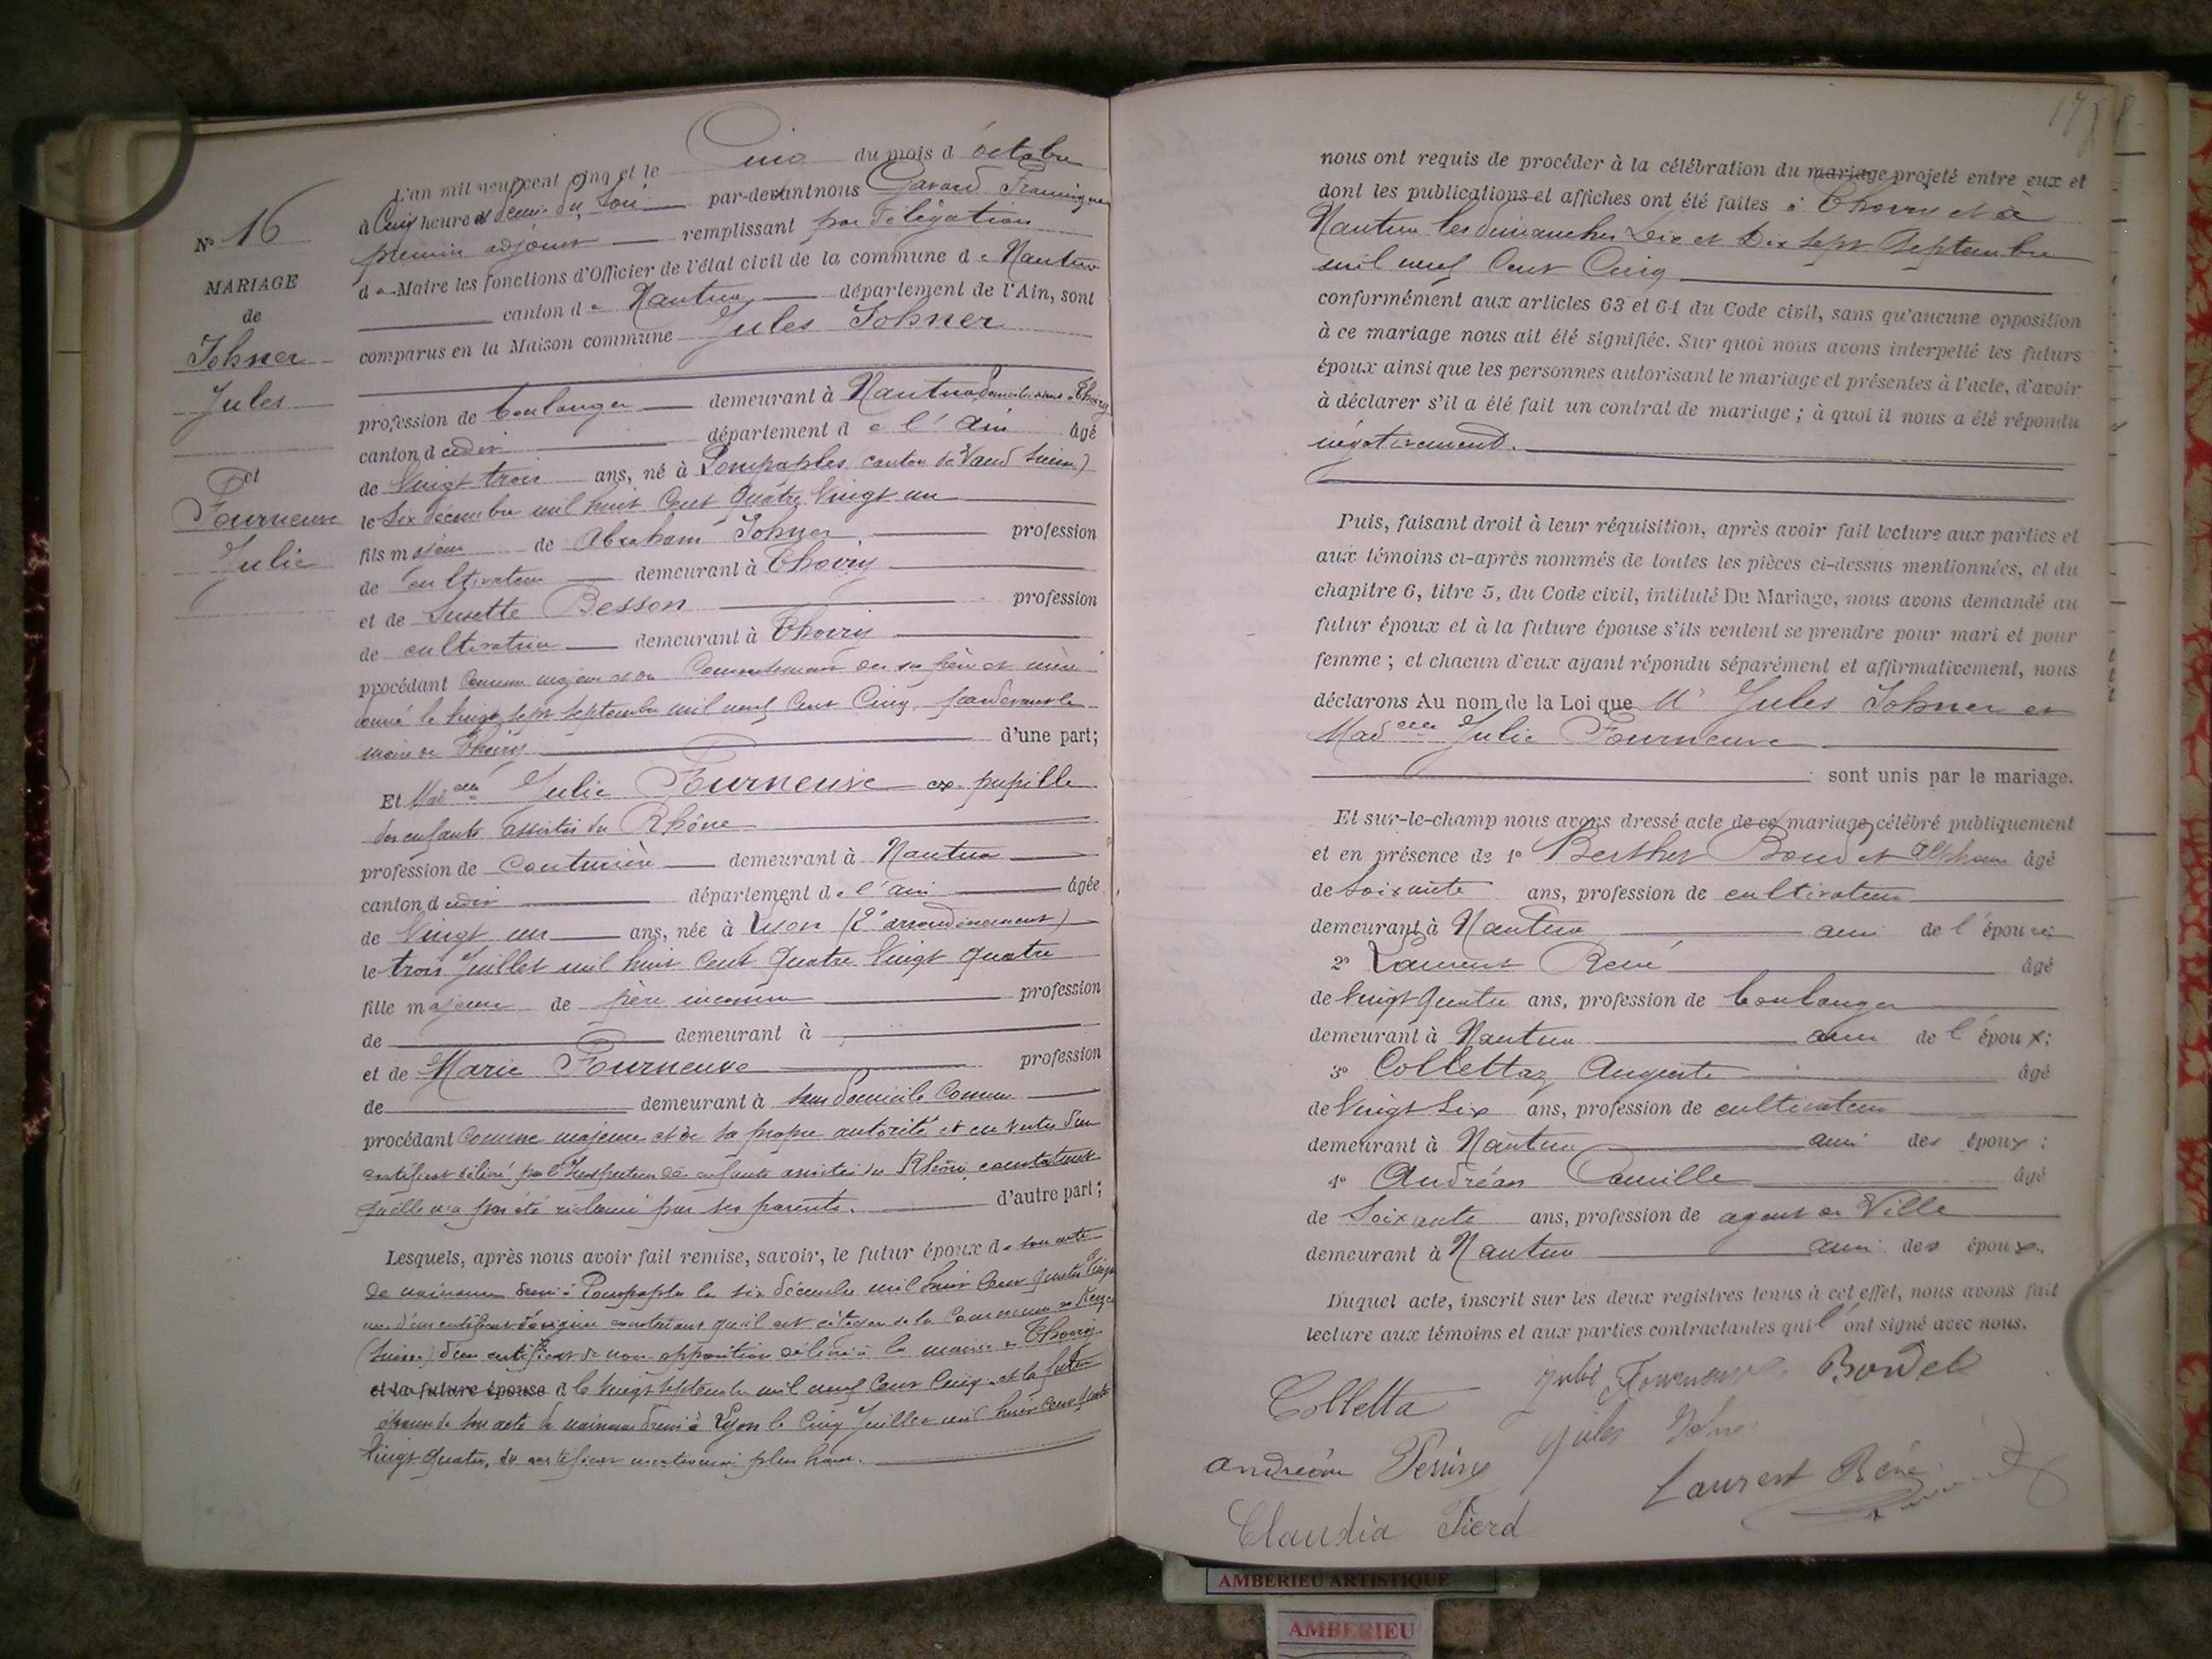 L'an mil neuf cent cinq et le Cinq du mois d'octobre
à Cinq heures demie du Soir par-devant nous Gavand
premier adjoint remplissant par délégation
d Maire les fonctions d'Officier de l'état civil de la commune de Nantua
canton de Nantua département de l'Ain, sont
comparus en la Maison commune Jules Johner
N° 16
MARIAGE
de
Johner
Jules
et
Fourneuve
Julie
profession de boulanger demeurant à Nantua
canton dudit département de l'Ain âgé
de Vingt trois ans, né à Pompaples canton de Vaud Suisse)
le six décembre mil huit Cent Quatre Vingt un
fils majeur de Abraham Johner profession
de cultivateur demeurant à Thoiry
et de Susette Besson profession
de cultivatrice demeurant à Thoiry
procédant comme majeur et du Consentement de ses père et mère
donné le vingt sept septembre mil neuf Cent Cinq, pardevant le
maire de Thoiry d'une part;
Et Mad elle Julie Fourneuve ex-pupille
des enfants assistés du Rhône
profession de Couturière demeurant à Nantua
canton dudit département de l'Ain âgée
de Vingt un ans, née à Lyon (2e arrondissement)
le trois Juillet mil huit Cent Quatre Vingt Quatre
fille majeure de père inconnu profession
de demeurant à
et de Marie Fourneuve profession
de demeurant à sans Domicile Connu
procédant Comme majeure et de sa propre autorité et en vertu d'un
certificat délivré par l'Inspecteur des enfants assistés du Rhône constatant
qu'elle n'a pas été réclamée par ses parents. d'autre part;
Lesquels, après nous avoir fait remise, savoir, le futur époux de son acte
de naissance dressé à Pompaples le six décembre mil huit Cent Quatre Vingt
un d'un certificat d'origine constatant qu'il est citoyen de la Commune de
(Suisse) d'un certificat de non opposition délivré à la mairie de Thoiry
et la future épouse d le vingt septembre mil neuf Cent Cinq et la future
épouse de son acte de naissance dressé à Lyon le Cinq Juillet mil huit Cent Quatre
Vingt Quatre, du certificat mentionné plus haut.
nous ont requis de procéder à la célébration du mariage projeté entre eux et
dont les publications et affiches ont été faites à Thoiry et à
Nantua les dimanches Dix et Dix Sept Septembre
mil neuf Cent Cinq
conformément aux articles 63 et 64 du Code civil, sans qu'aucune opposition
à ce mariage nous ait été signifiée. Sur quoi nous avons interpellé les futurs
époux ainsi que les personnes autorisant le mariage et présentes à l'acte, d'avoir
à déclarer s'il a été fait un contrat de mariage; à quoi il nous a été répondu
négativement.
Puis, faisant droit à leur réquisition, après avoir fait lecture aux parties et
aux témoins ci-après nommés de toutes les pièces ci-dessus mentionnées, et du
chapitre 6, titre 5, du Code civil, intitulé Du Mariage, nous avons demandé au
futur époux et à la future épouse s'ils veulent se prendre pour mari et pour
femme; et chacun d'eux ayant répondu séparément et affirmativement, nous
déclarons Au nom de la Loi que Mr Jules Johner et
Mad elle Julie Fourneuve
sont unis par le mariage.
Et sur-le-champ nous avons dressé acte de ce mariage célébré publiquement
et en présence de 1° Berthet Alphonse âgé
de Soixante ans, profession de cultivateur
demeurant à Nantua ami de l'épouse;
2° Laurent René âgé
de Vingt Quatre ans, profession de boulanger
demeurant à Nantua ami de l'époux;
3° Collettaz Auguste âgé
de Vingt Six ans, profession de cultivateur
demeurant à Nantua ami des époux;
4° Andréan Camille âgé
de Soixante ans, profession de agent de Ville
demeurant à Nantua ami des époux.
Duquel acte, inscrit sur les deux registres tenus à cet effet, nous avons fait
lecture aux témoins et aux parties contractantes qui l'ont signé avec nous.
Julie Fourneuve Boudet
Colletta
Jules Johner
andréan
Laurent René
Claudia
AMBERIEU ARTISTIQUE
AMBERIEU